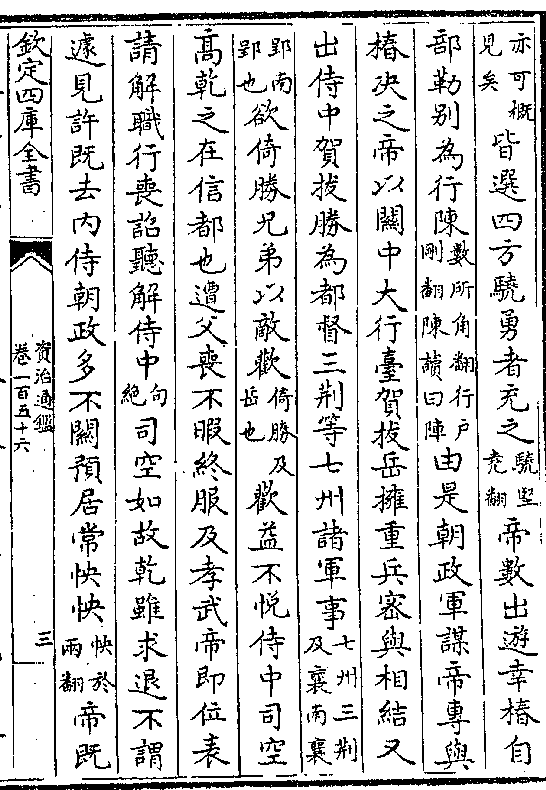 亦可概見矣皆選四方驍勇者充之驍堅堯翻帝數出遊幸椿自
部勒别為行陳數所角翻行户剛翻陳讀曰陣由是朝政軍謀帝專與
椿決之帝以關中大行臺賀拔岳擁重兵密與相結又
出侍中賀拔勝為都督三荆等七州諸軍事七州三荆及襄南襄
郢南郢也欲倚勝兄弟以敵歡倚勝及岳也歡益不悦侍中司空
高乾之在信都也遭父喪不暇終服及孝武帝即位表
請解職行喪詔聽解侍中句絶司空如故乾雖求退不謂
遽見許既去内侍朝政多不關預居常怏怏怏於兩翻帝既
欽定四庫全書
資治通鑑
卷一百五十六
三